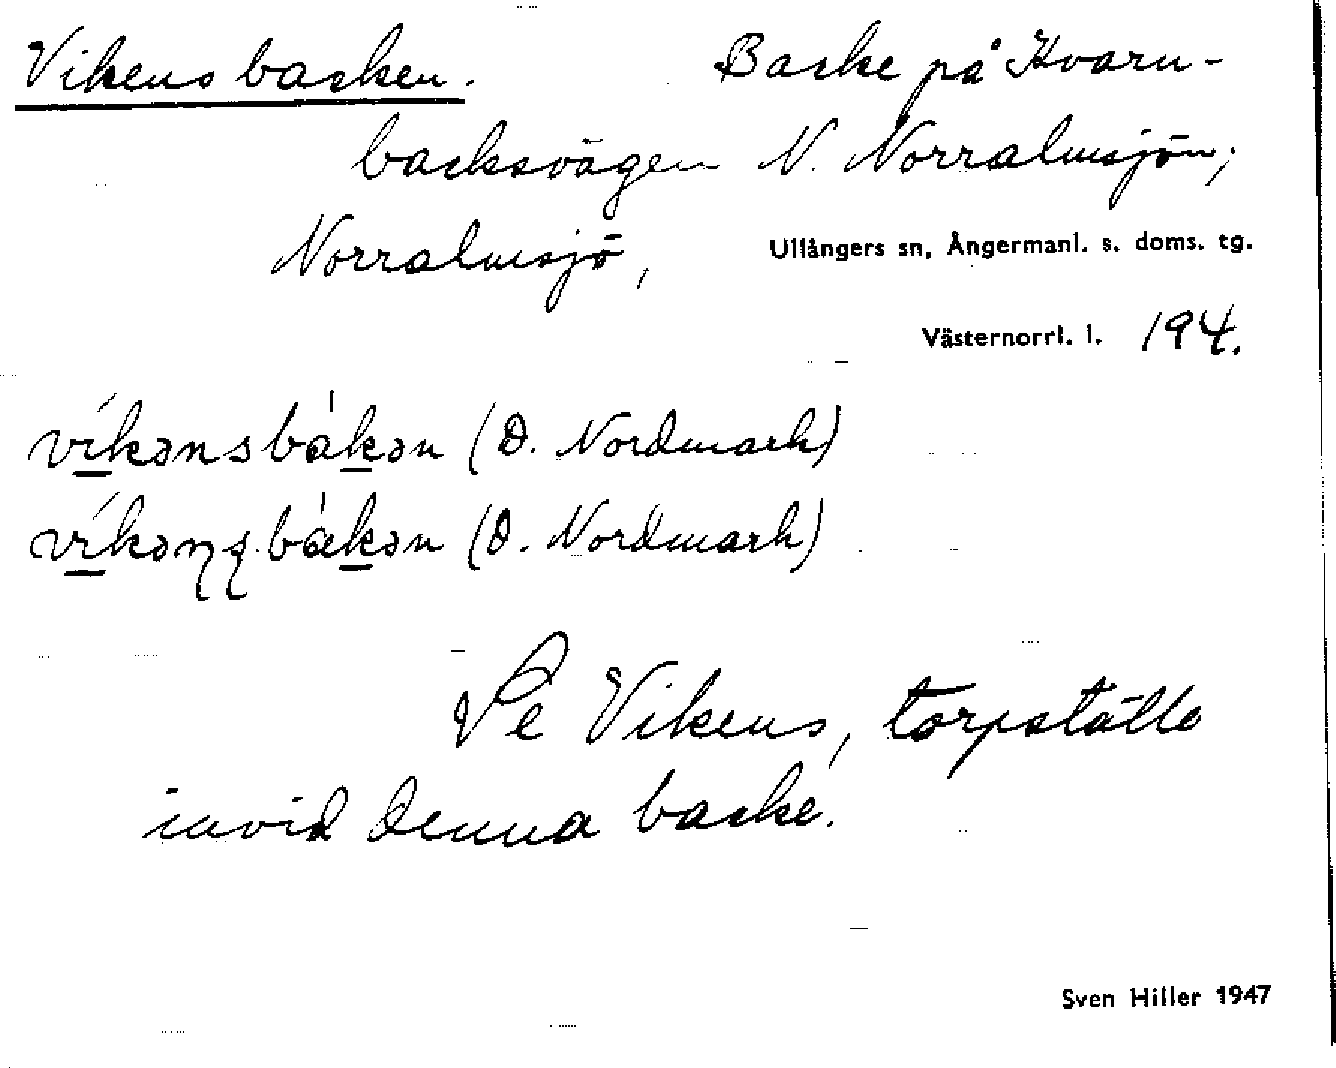 Vikensbacken. Backe på Kvarn-
backsvägen N. Norralmsjön;
Norralmsjö, Ullångers sn, Ångermanl. s. doms. tg.
Västernorrl. l. 194.
víkənsbàkən (D. Nordmark)
víkəɳʂbàkən (D. Nordmark)
Se Vikens, torpställe
invid denna backe.
Sven Hiller 1947